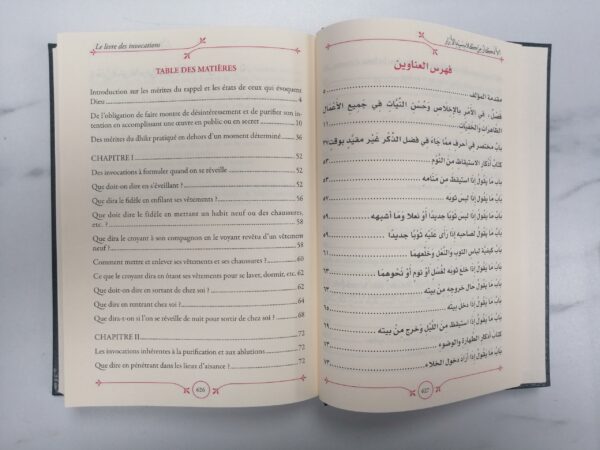 Le livre des invocations
TABLE DES MATIÈRES
Introduction sur les mérites du rappel et les états de ceux qui évoquent
Dieu 4
De l'obligation de faire montre de désintéressement et de purifier son in-
tention en accomplissant une œuvre en public ou en secret 10
Des mérites du dhikr pratiqué en dehors d'un moment déterminé 36
CHAPITRE I 52
Des invocations à formuler quand on se réveille 52
Que doit-on dire en s'éveillant ? 52
Que dira le fidèle en enfilant ses vêtements ? 56
Que doit dire le fidèle en mettant un habit neuf ou des chaussures,
etc. ? 58
Que dira le croyant à son compagnon en le voyant revêtu d'un vêtement
neuf ? 58
Comment mettre et enlever ses vêtements et ses chaussures ? 60
Ce que le croyant dira en ôtant ses vêtements pour se laver, dormir, etc. 62
Que doit-on dire en sortant de chez soi ? 62
Que dire en rentrant chez soi ? 64
Que dira-t-on si l'on se réveille de nuit pour sortir de chez soi ? 68
CHAPITRE II 72
Les invocations inhérentes à la purification et aux ablutions 72
Que dire en pénétrant dans les lieux d'aisance ? 72
626
فهرس العناوين
مقدمة المؤلف ٥
فَصْلٌ، في الأمْرِ بالإخْلاصِ وَحُسْنِ النِّيَّاتِ فِي جَمِيعِ الأعْمَالِ
الظاهرات والخفيات
بابُ مختصر في أحرف ممّا جَاءَ في فضل الذِّكْرِ غَيْر مقيَّدٍ بوقتٍ ٣٧
كتابُ أذكار الاستيقاظ من النَّوْم ٥٣
بابُ ما يَقُولُ إذا استيقظ من مَنامه ٥٣
بابُ ما يَقُولُ إذا لبس ثوبه
بابُ ما يقولُ إذا لبس ثوبًا جديدًا أوْ نعلًا وَما أشبهه ٥٩
بابُ ما يقولُ لصاحبه إذا رأى عليه ثَوبًا جديدًا ٥٩
بابُ كيفيّة لباس الثوب والنَّعْل وخَلْعهما
بابُ ما يقولُ إذا خلع ثوبه لغسلٍ أوْ نومٍ أوْ نَحْوهِمَا ٦٣
بابُ ما يقولُ حال خروجه من بيته ٦٣
بابُ ما يقولُ إذا دخل بيته
بابُ ما يقولُ إذا استيقظ من اللَّيل وَخرج منْ بيته
كتابُ أذكار الطهارة والوضوء ٧٣
بابُ ما يقولُ إذَا أرَادَ دخولَ الخلاء ٧٣
627